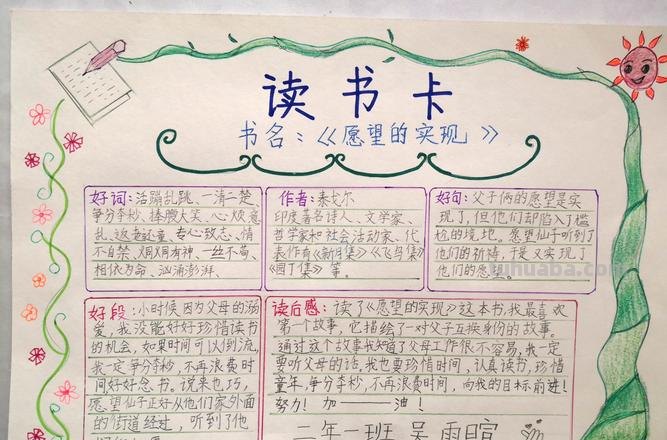 读书卡
书名：《愿望的实现》
好词：活蹦乱跳、一清二楚、
争分夺秒、捧腹大笑、心烦意
乱、返老还童、专心致志、情
不自禁、炯炯有神、一丝不苟、
相依为命、汹涌澎湃、
作者：泰戈尔
印度著名诗人、文学家、
哲学家和社会活动家、代
表作有《新月集》《飞鸟集》
《园丁集》等。
好句：父子俩的愿望是实
现了，但他们却陷入了尴
尬的境地。愿望仙子听到了
他们的祈祷，于是又实现了
他们的愿望。
好段：小时候因为父母的溺
爱，我没能好好珍惜读书
的机会，如果时间可以倒流，
我一定争分夺秒，不再浪费时
间好好念书。说来也巧，
愿望仙子正好从他们家外面
的街道经过，听到了他
读后感：读了《愿望的实现》这本书，我最喜欢
第一个故事，它描绘了一对父子互换身份的故事。
通过这个故事我知道了父母工作很不容易，我一定
要听父母的话，我也要珍惜时间，认真读书，珍惜
童年，争分夺秒，不再浪费时间，向我的目标前进！
努力！加——油！
二年一班 吴雨宣